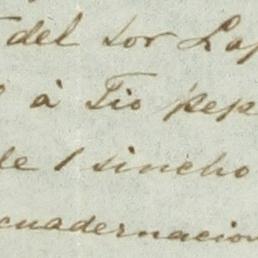 del sor Lap
à Tio pep
de 1 sincho
cuadernacion